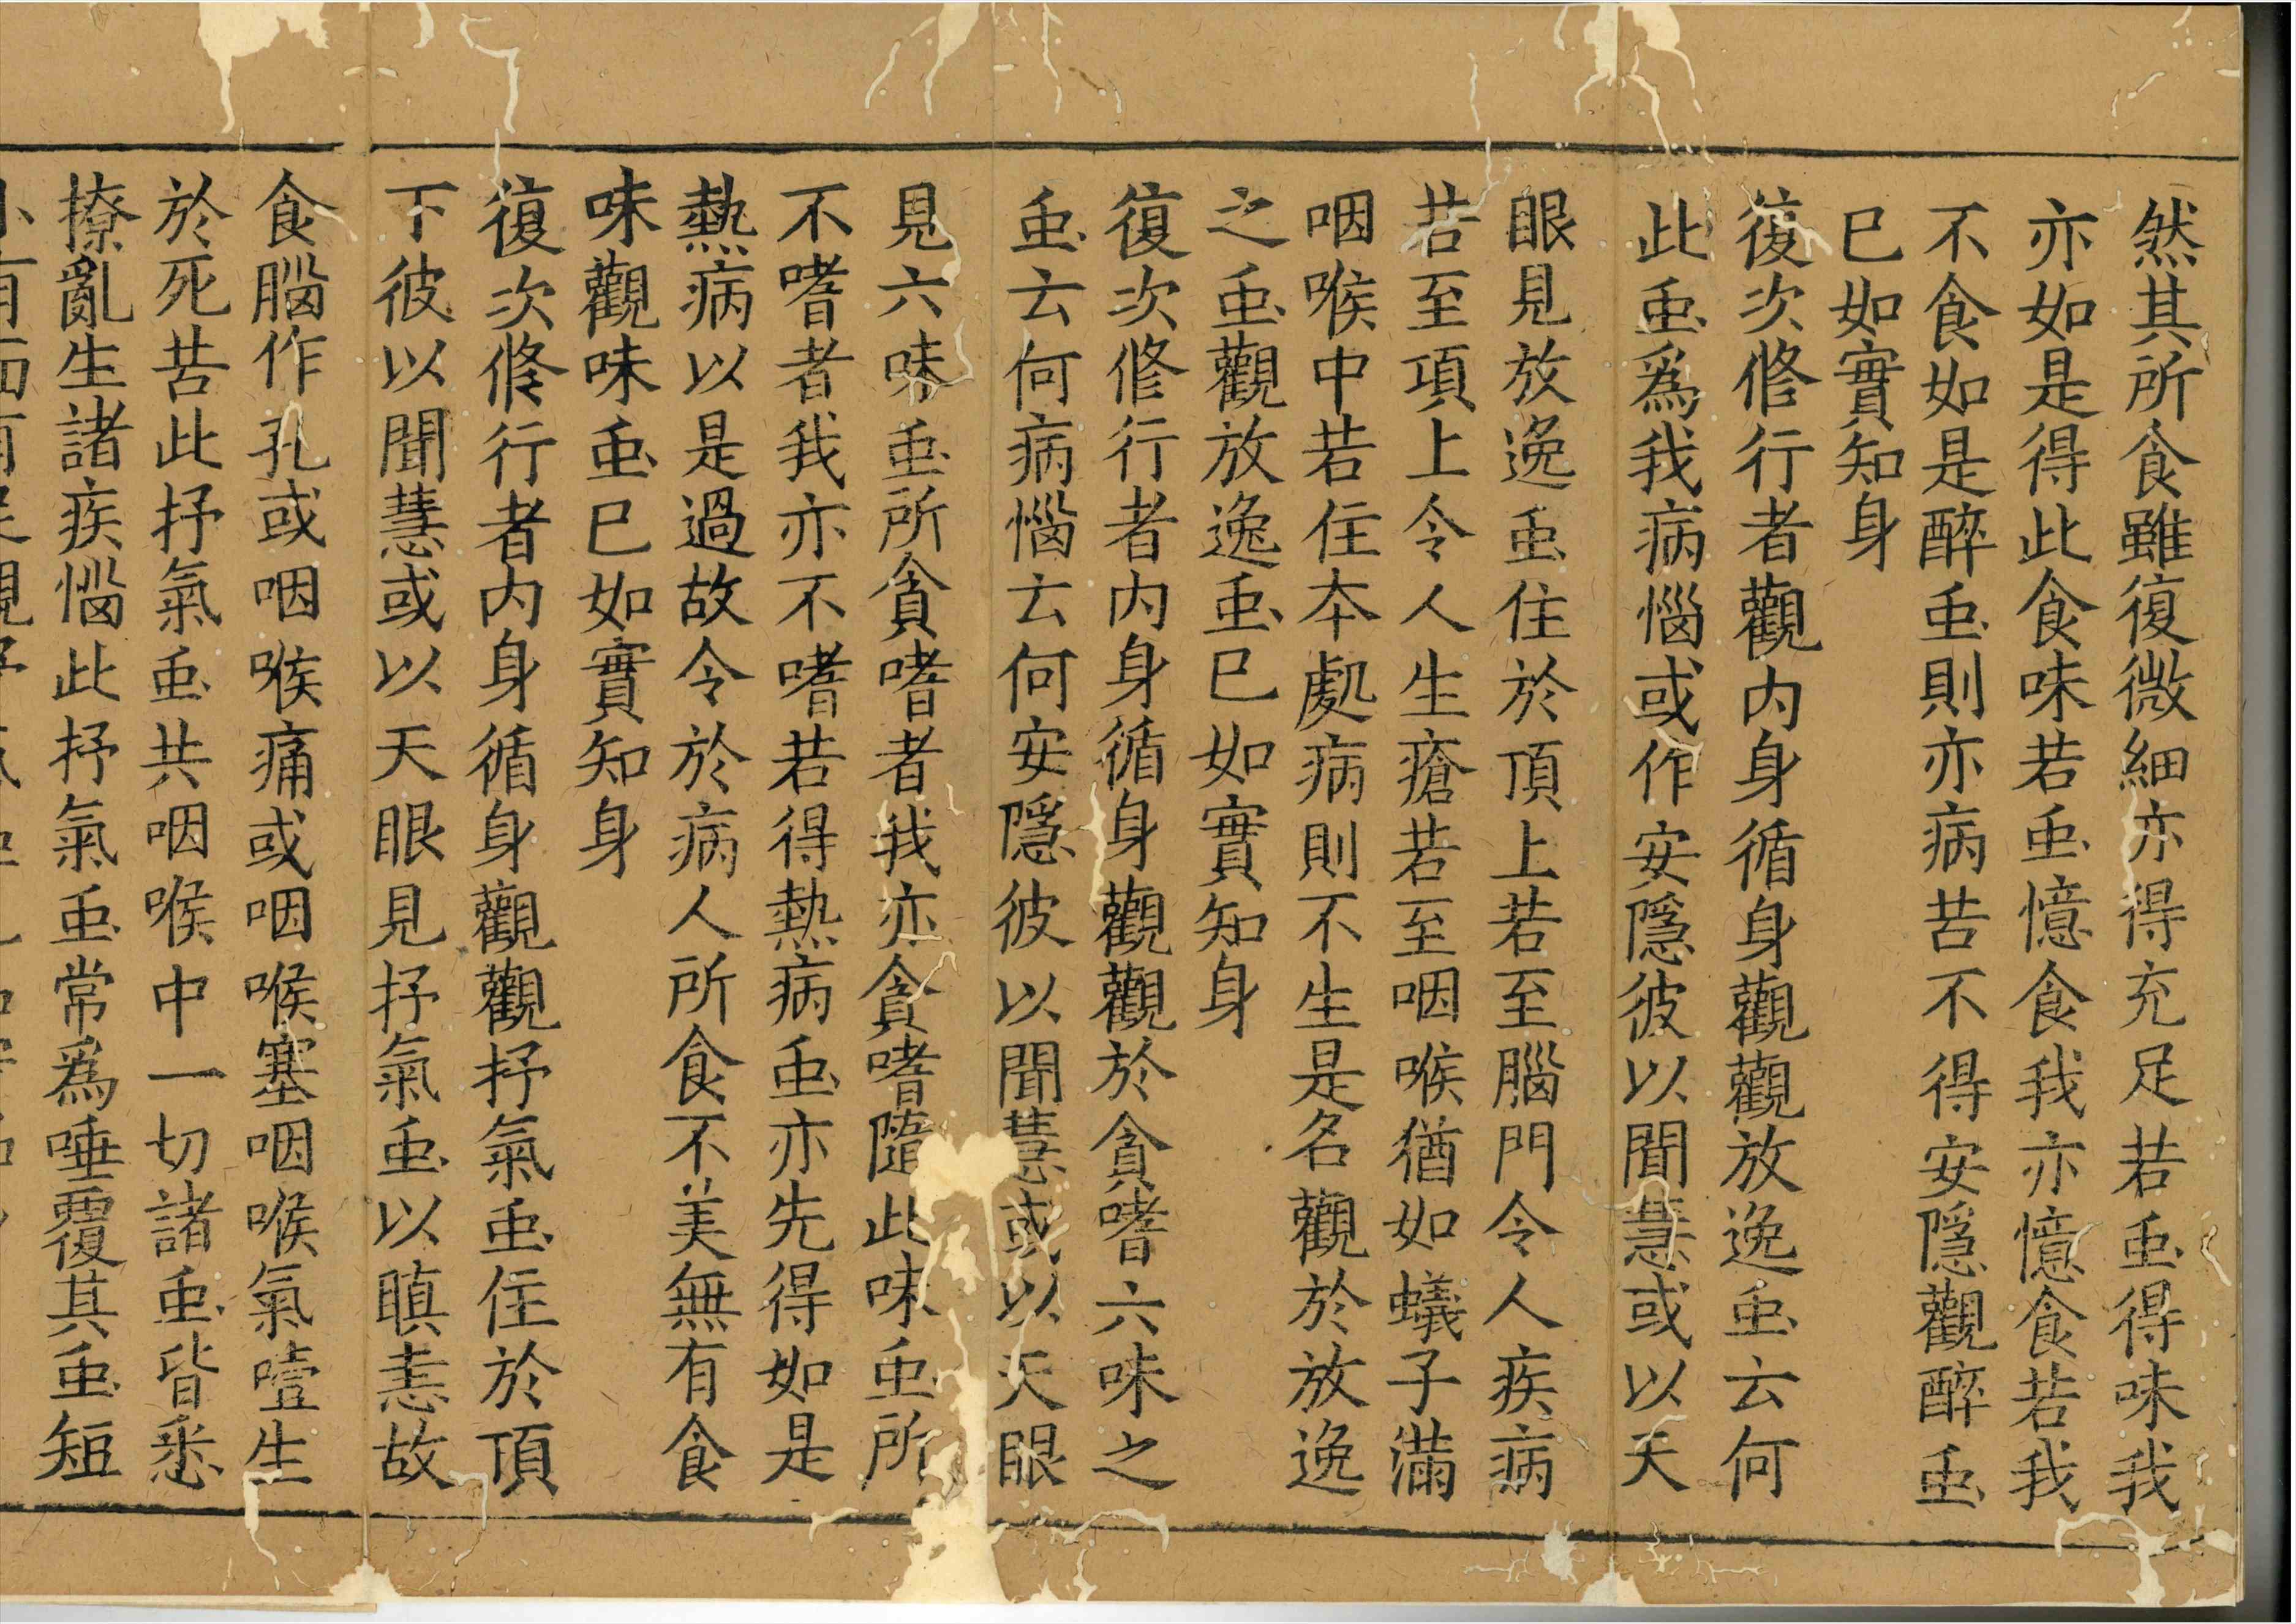 然其所食雖復微細亦得充足若䖝得味我
亦如是得此食味若䖝憶食我亦憶食若我
不食如是醉䖝則亦病苦不得安隱觀醉䖝
已如實知身
復次修行者觀内身循身觀觀放逸䖝云何
此䖝爲我病惱或作安隱彼以聞慧或以天
眼見放逸䖝住於頂上若至腦門令人疾病
若至項上令人生瘡若至咽喉猶如蟻子滿
咽喉中若住本處病則不生是名觀於放逸
之䖝觀放逸䖝已如實知身
復次修行者内身循身觀觀於貪嗜六味之
䖝云何病惱云何安隱彼以聞慧或以天眼
見六味䖝所貪嗜者我亦貪嗜隨此味䖝所
不嗜者我亦不嗜若得熱病䖝亦先得如是
熱病以是過故令於病人所食不美無有食
味觀味䖝已如實知身
復次修行者内身循身觀觀抒氣䖝住於頂
下彼以聞慧或以天眼見抒氣䖝以瞋恚故
食腦作孔或咽喉痛或咽喉塞咽喉氣噎生
於死苦此抒氣䖝共咽喉中一切諸䖝皆悉
撩亂生諸疾惱此抒氣䖝常爲唾覆其䖝短